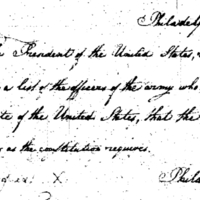 Philadelp
President of the United States,
a list of the officers of the army who
te of the United States, that the
as the constitution requires.
Phila